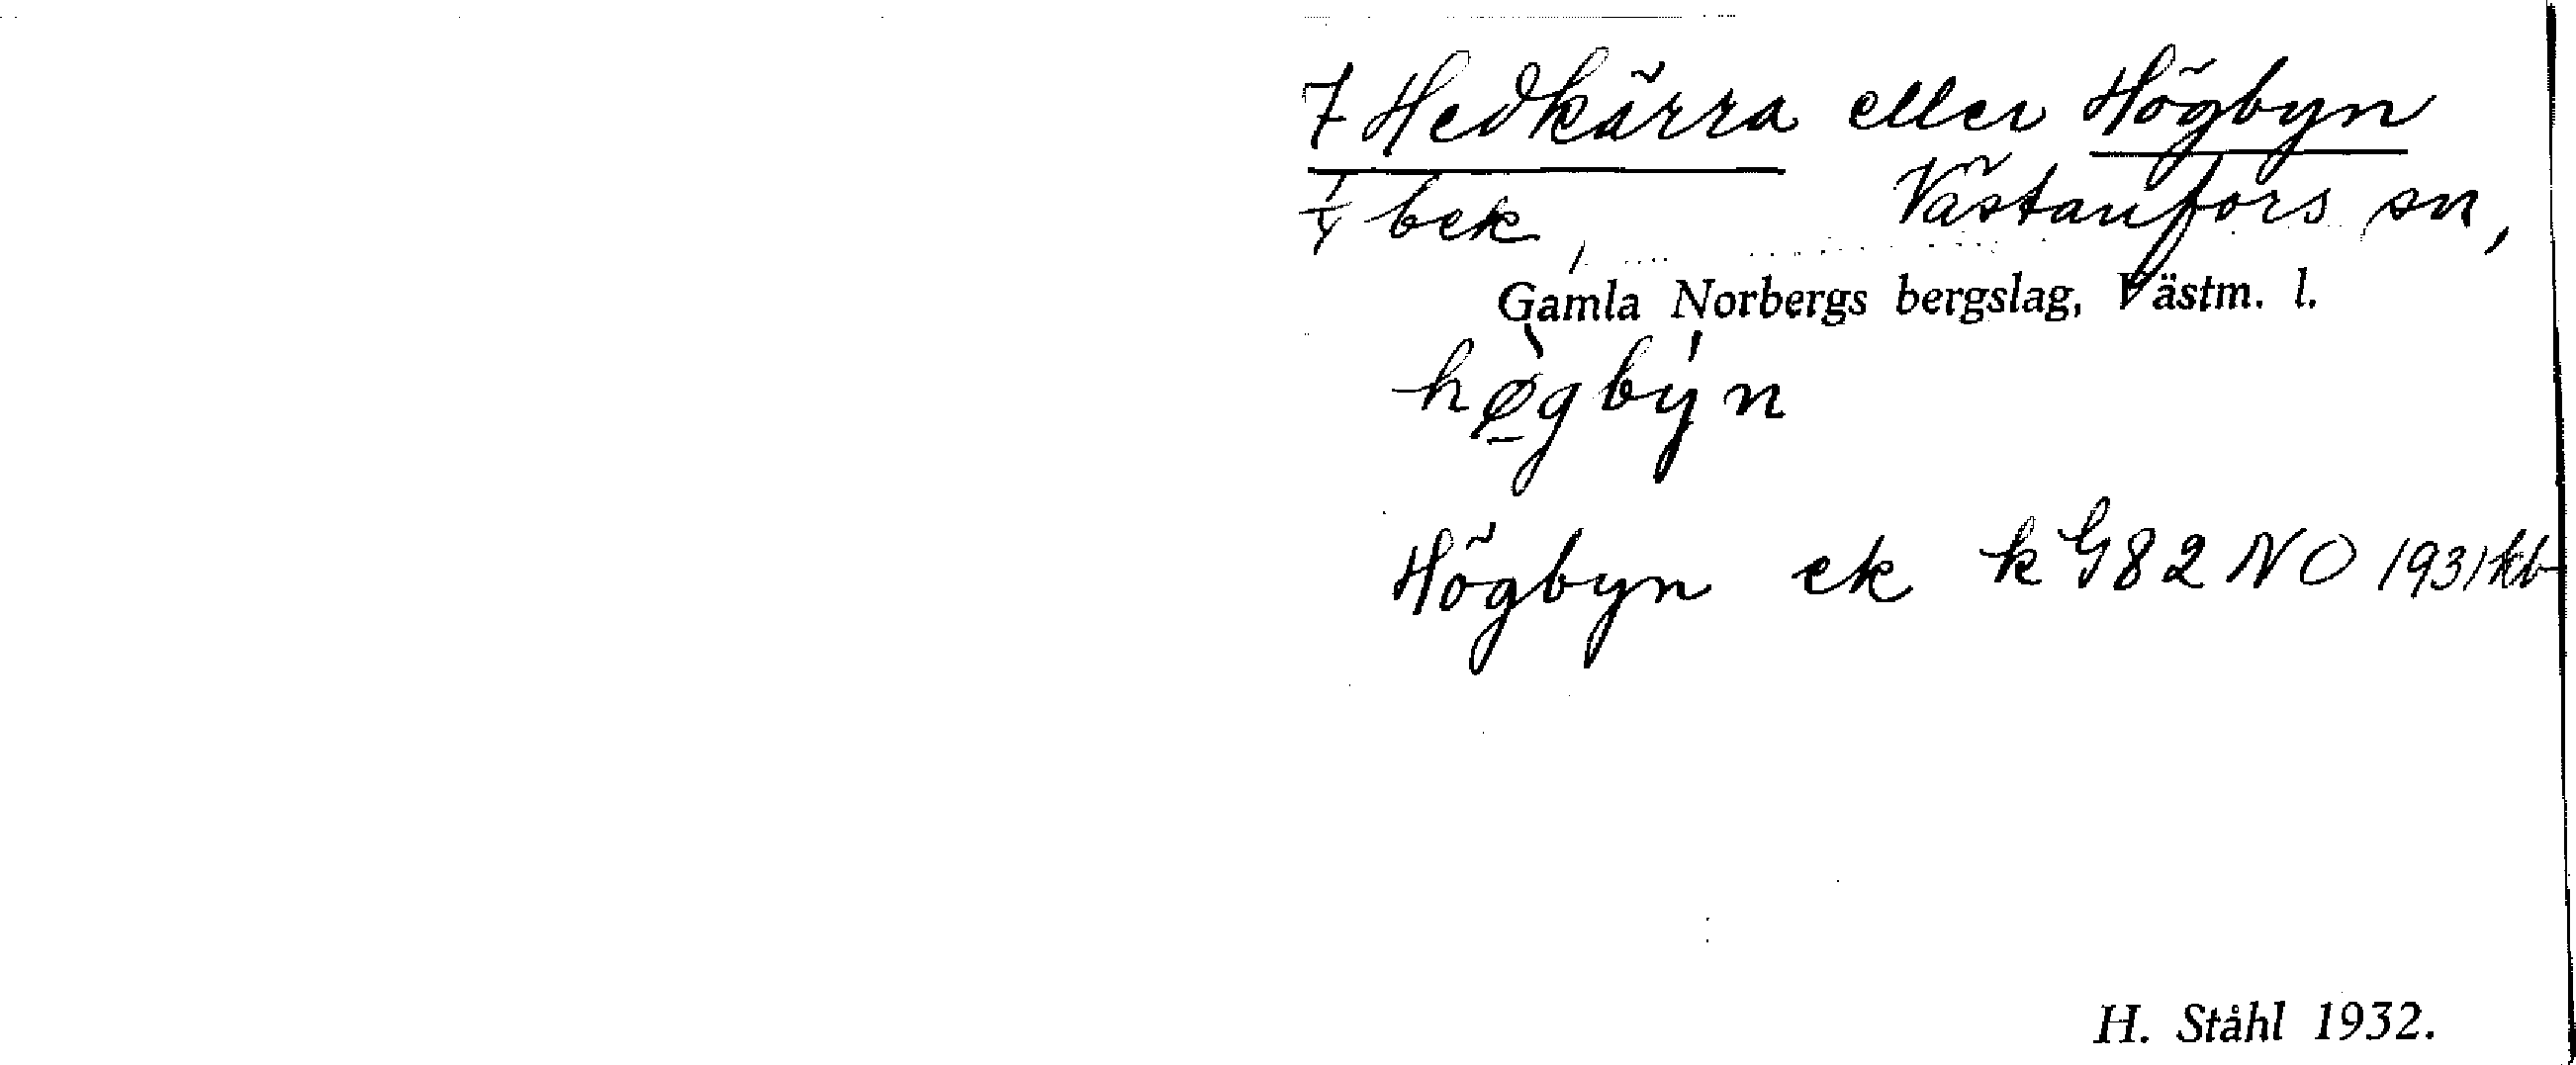 7 Hedkärra eller Högbyn
1/4 bek, Västanfors sn,
Gamla Norbergs bergslag, Västm. l.
hø̀gby̍n
Högbyn ek k G82 NO 1931 kb
H. Ståhl 1932.